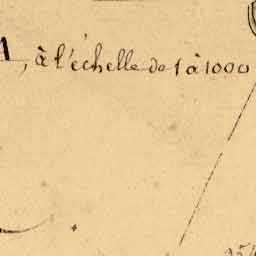 , à l'échelle de 1 à 1000